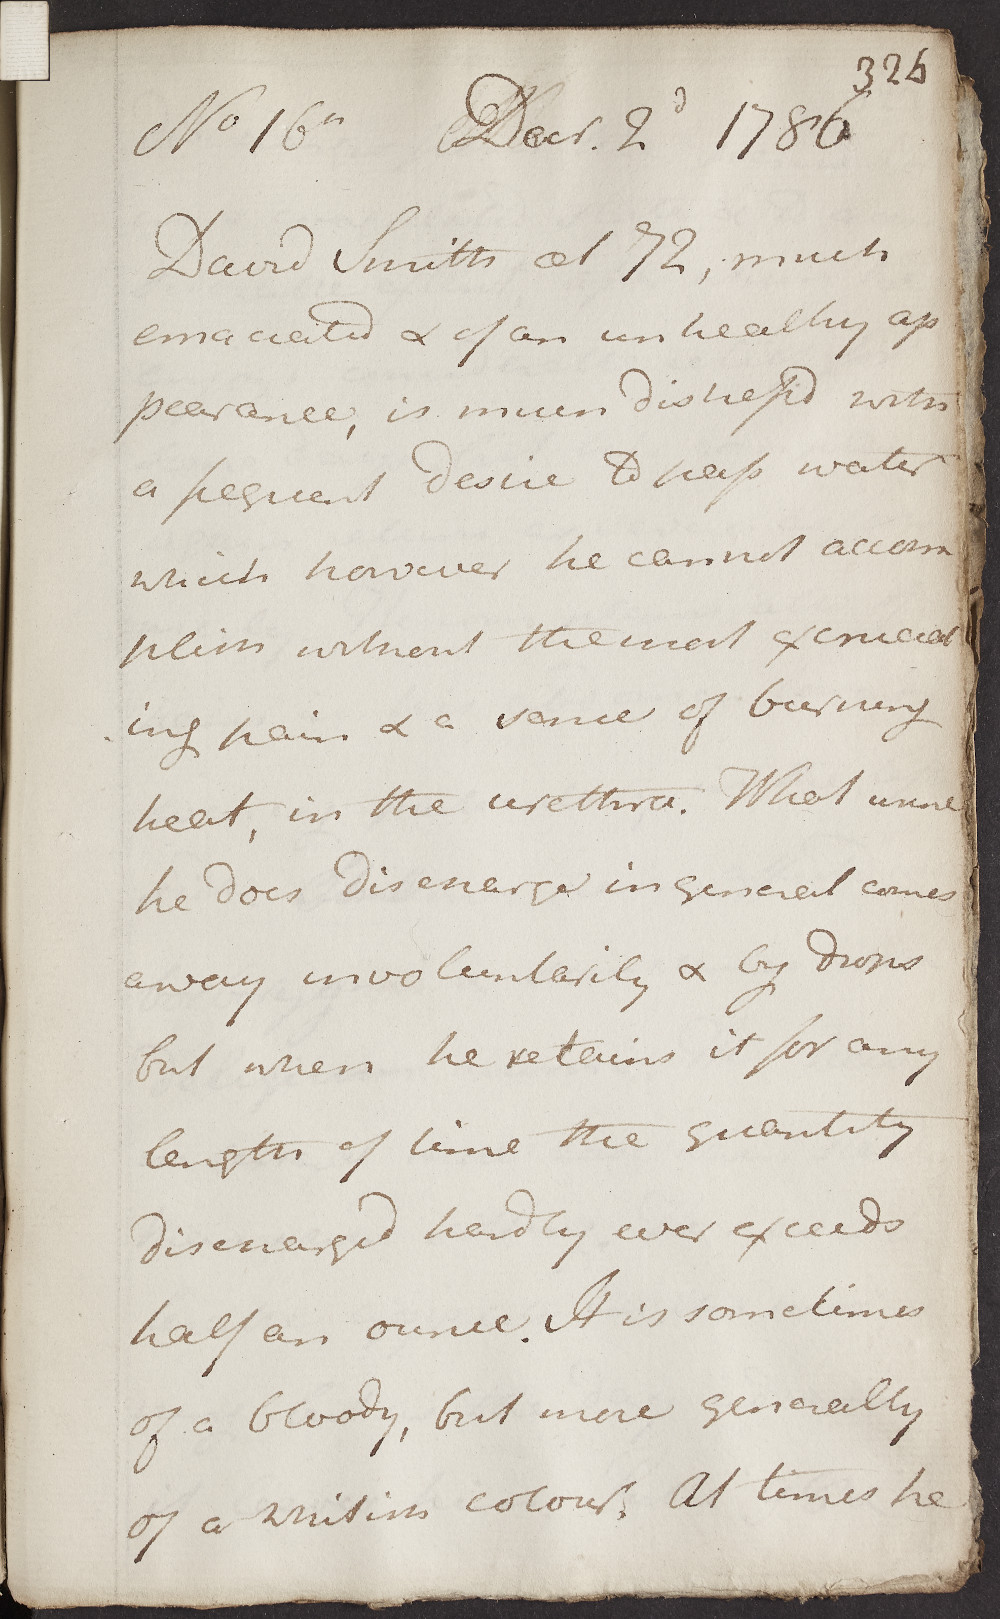 326
No 16th Decr. 2d 1786
David Smith æt 72, much
emaciated & of an unhealthy ap
pearance, is much distress'd with
a frequent desire to pass water
which however he cannot accom
plish without the most excruciat
ing pain & a sense of burning
heat, in the urethra. What urine
he does discharge in general comes
away involuntarily & by drops
but when he retains it for any
length of time the quantity
discharged hardly ever exceeds
half an ounce. It is sometimes
of a bloody, but more generally
of a whitish colour. At times he